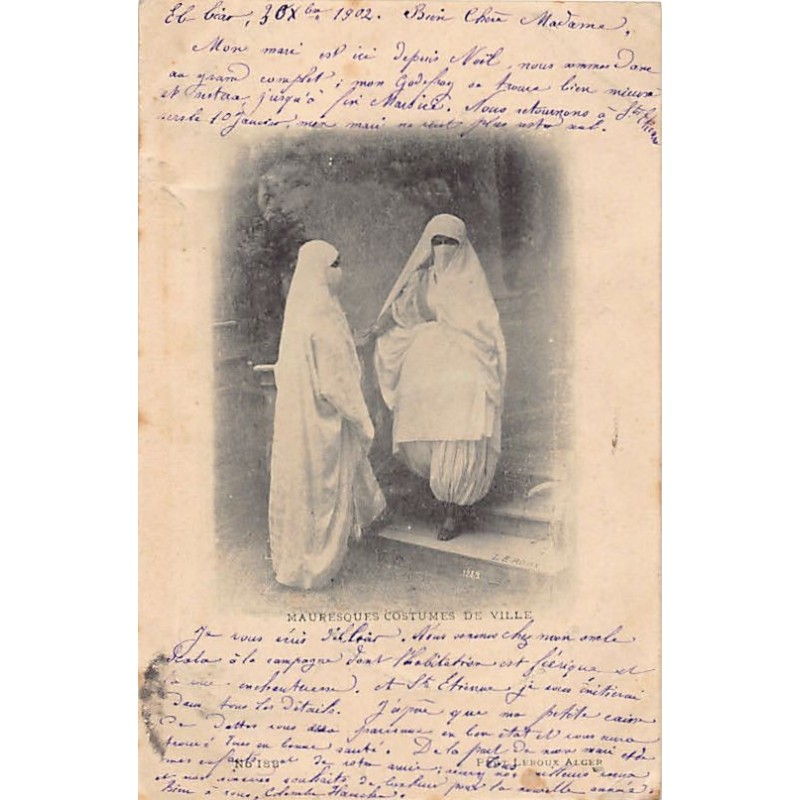 El biar, 30 Xbre 1902. Bien Chère Madame,
Mon mari est ici depuis Noël, nous sommes donc
au grand complet ; mon Godefroy se trouve bien mieux
et jusqu'à Nous retournons à St Etienne
vers le 10 Janvier, mon mari ne veut plus
LEROUX
MAURESQUES COSTUMES DE VILLE
Je vous écris d'Elbiar. Nous sommes chez mon oncle
à la campagne dont l'habitation est féerique et
la vue enchanteresse. A St Etienne je vous
tous les détails. J'espère que ma petite caisse
De dattes vous parvienne en bon état et vous
tous en bonne santé. De la part de mon mari et de
mes enfants et de votre amie, recevez nos meilleurs vœux
et nos sincères souhaits de bonheur pour la nouvelle année
bien à vous, Colombe
No 188 Phot. LEROUX ALGER